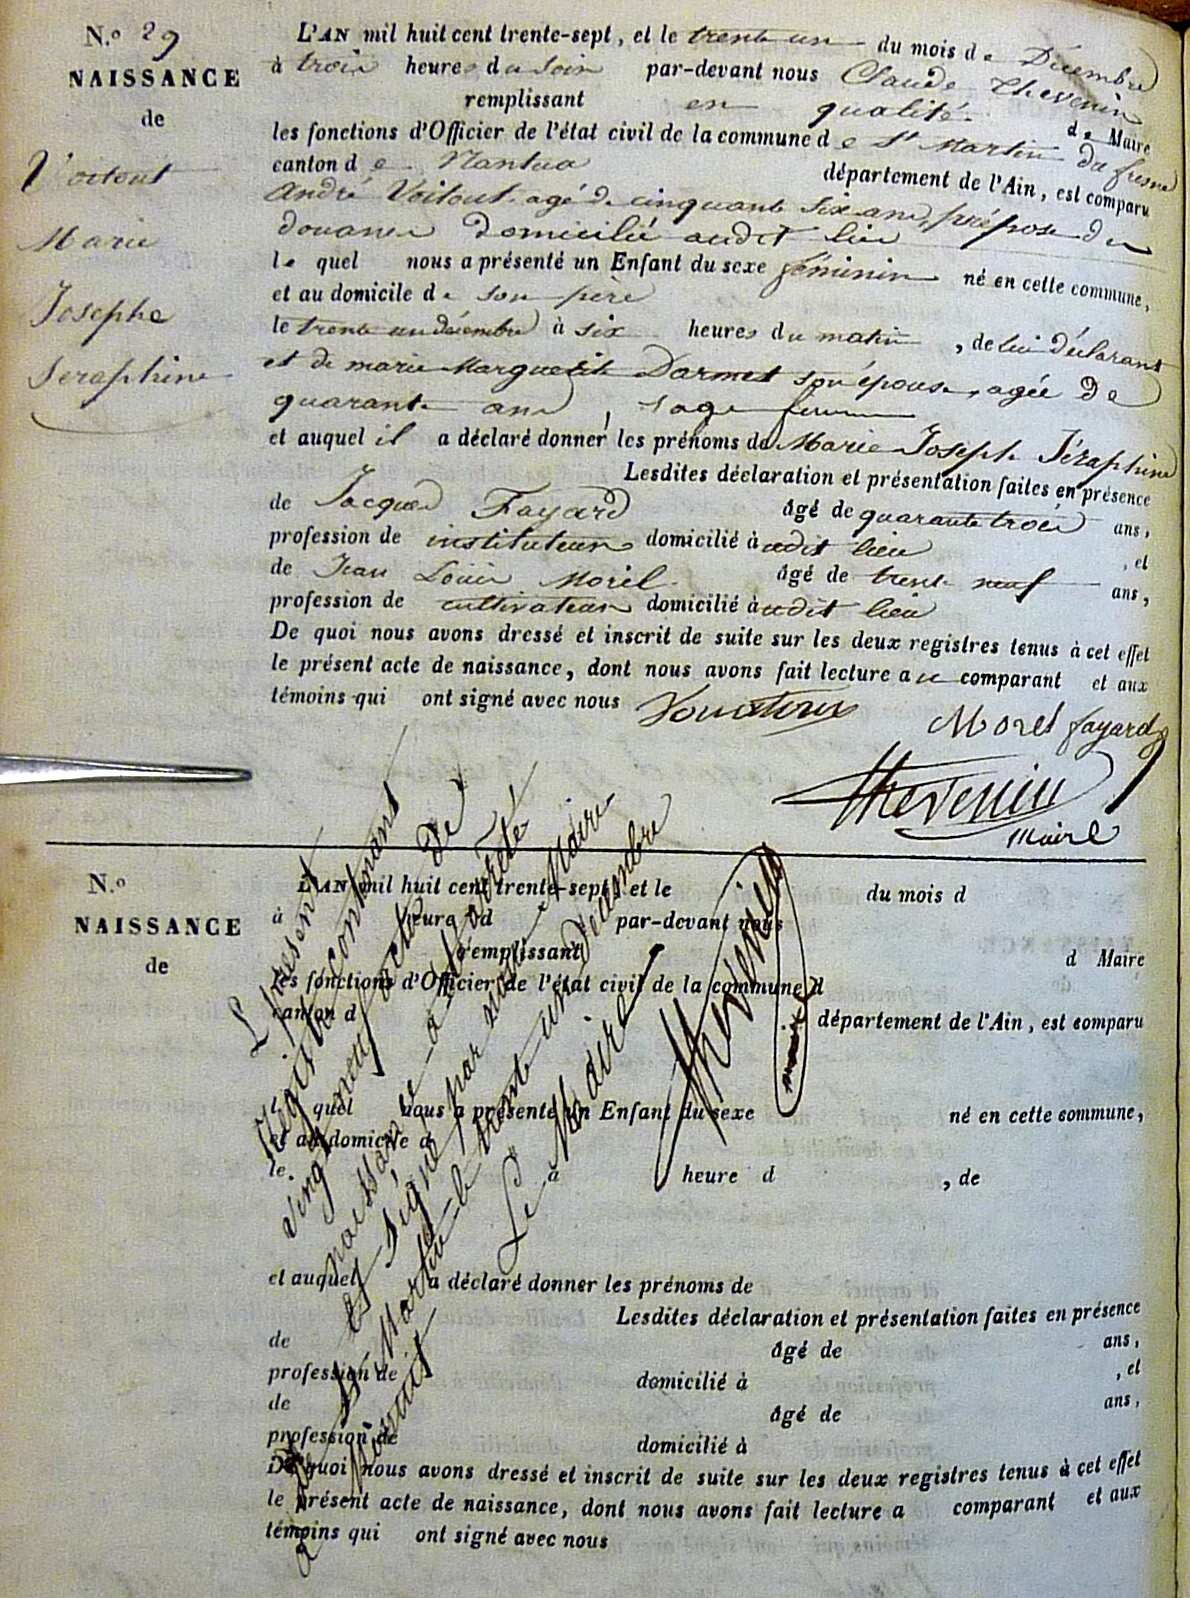 N.o 29
NAISSANCE
de
Voitout
Marie
Josephe
Seraphine
L'AN mil huit cent trente-sept, et le trente un du mois de Décembre
à trois heures du soir par-devant nous Claude Thevenin
remplissant en qualité de Maire
les fonctions d'Officier de l'état civil de la commune de St Martin du fresne
canton de Nantua département de l'Ain, est comparu
André Voitout agé de cinquante six ans, préposé des
douanes domicilié audit lieu
le quel nous a présenté un Enfant du sexe féminin né en cette commune,
et au domicile de son père
le trente un décembre à six heures du matin, de lui déclarant
et de marie Marguerite Darmet son épouse, agée de
quarante ans, sage femme
et auquel il a déclaré donner les prénoms de Marie Joseph Séraphine
Lesdites déclaration et présentation faites en présence
de Jacques Fayard âgé de quarante trois ans,
profession de instituteur domicilié audit lieu, et
de Jean Louis Morel âgé de trente neuf ans,
profession de cultivateur domicilié audit lieu
De quoi nous avons dressé et inscrit de suite sur les deux registres tenus à cet effet
le présent acte de naissance, dont nous avons fait lecture au comparant et aux
témoins qui ont signé avec nous
Morel fayard
Thevenin
Maire
N.o
NAISSANCE
de
L'AN mil huit cent trente-sept, et le du mois d
à heure d par-devant nous
remplissant d Maire
les fonctions d'Officier de l'état civil de la commune d
canton d département de l'Ain, est comparu
quel nous a présenté un Enfant du sexe né en cette commune,
et au domicile d
le à heure d , de
et auquel a déclaré donner les prénoms de
Lesdites déclaration et présentation faites en présence
de âgé de ans,
profession de domicilié à , et
de âgé de ans,
profession de domicilié à
De quoi nous avons dressé et inscrit de suite sur les deux registres tenus à cet effet
le présent acte de naissance, dont nous avons fait lecture a comparant et aux
témoins qui ont signé avec nous
Le présent
Registre contenant
vingt neuf actes de
naissance a été arrêté
et signé par nous Maire
St Martin le trente un décembre
Le Maire
Thevenin
maire